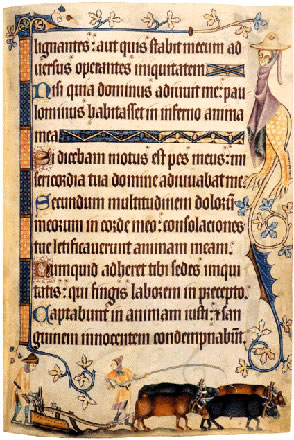 lignantes : aut quis stabit mecum ad
uersus operantes iniquitatem.
Nisi quia dominus adiuuit me : pau
lominus habitasset in inferno anima
mea
Si dicebam motus est pes meus : mi
sericordia tua domine adiuuabat me.
Secundum multitudinem dolorū
meorum in corde meo : consolaciones
tue letificauerunt animam meam.
Numquid adheret tibi sedes iniqui
tatis : qui fingis laborem in precepto.
Captabunt in animam iusti : ⁊ san
guinem innocentem condempnabūt.